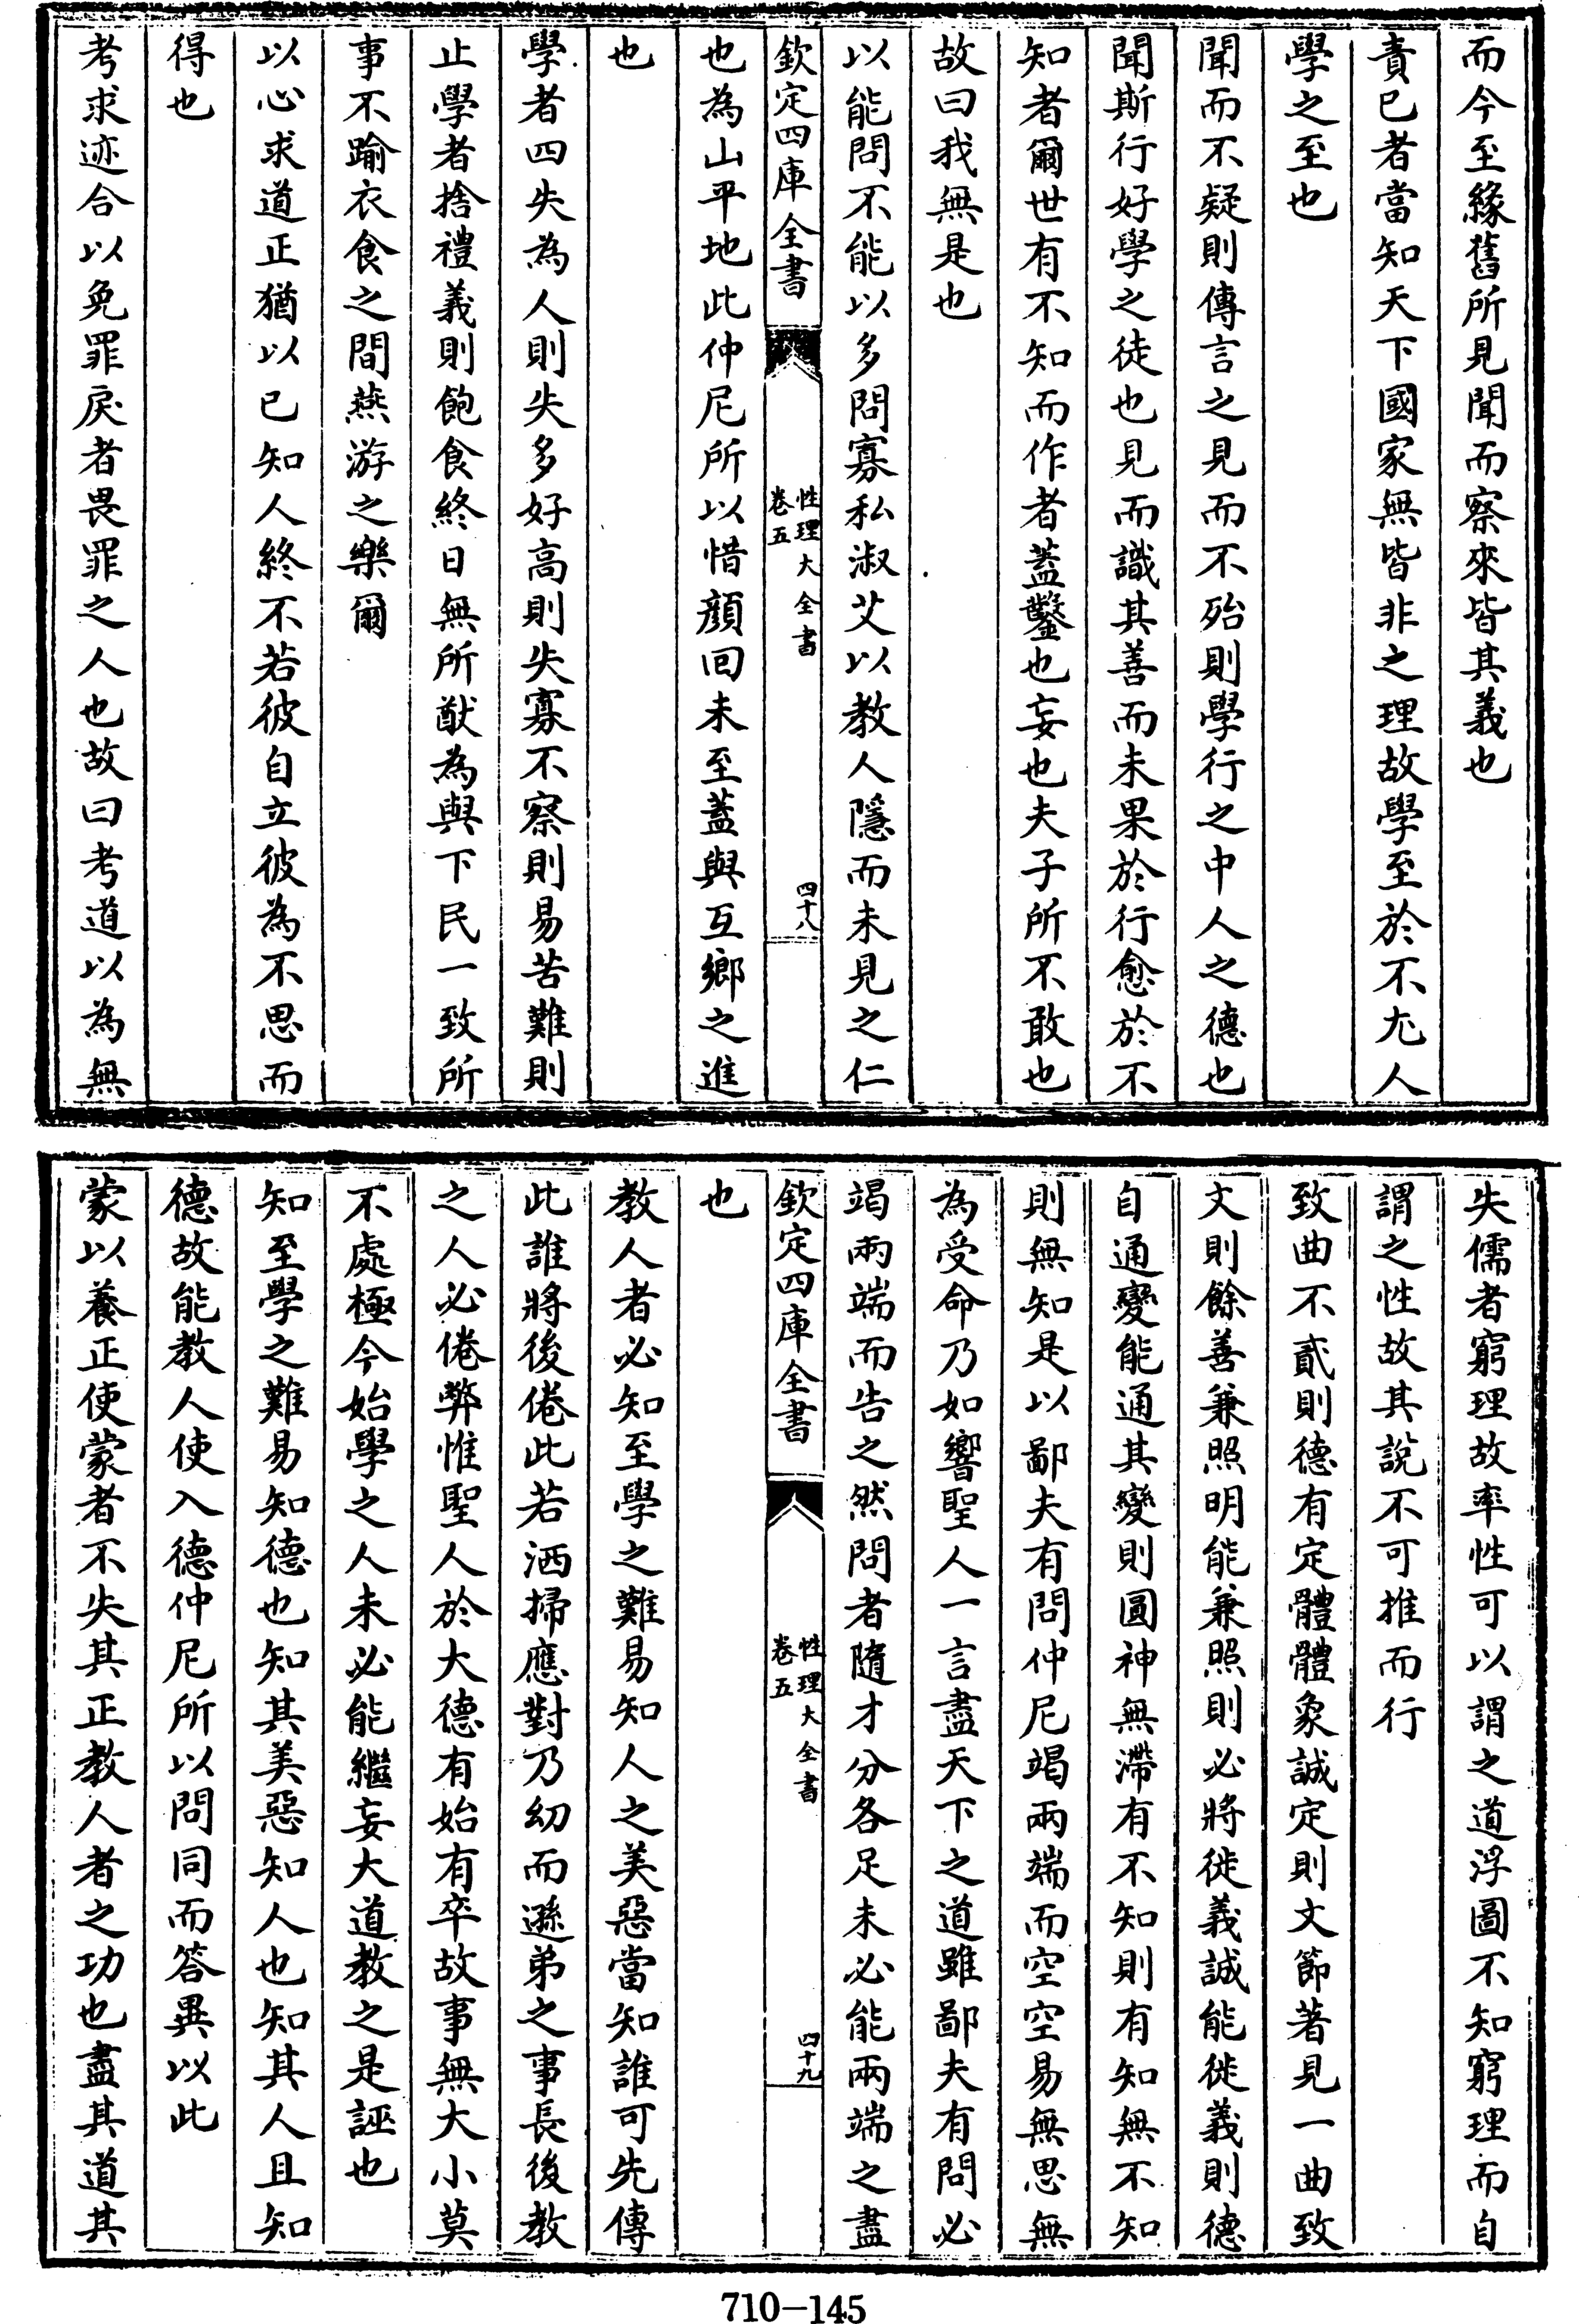 而今至緣舊所見聞而察來皆其義也
責已者當知天下國家無皆非之理故學至於不尤人
學之至也
聞而不疑則傳言之見而不殆則學行之中人之德也
聞斯行好學之徒也見而識其善而未果於行愈於不
知者爾世有不知而作者蓋鑿也妄也夫子所不敢也
故曰我無是也
以能問不能以多問寡私淑艾以教人隱而未見之仁
欽定四庫全書
性理大全書
卷五
四十八
也為山平地此仲尼所以惜顔回未至蓋與互鄉之進
也
學者四失為人則失多好高則失寡不察則易苦難則
止學者捨禮義則飽食終日無所猷為與下民一致所
事不踰衣食之間燕游之樂爾
以心求道正猶以已知人終不若彼自立彼為不思而
得也
考求迹合以免罪戾者畏罪之人也故曰考道以為無
失儒者窮理故率性可以謂之道浮圖不知窮理而自
謂之性故其說不可推而行
致曲不貳則德有定體體象誠定則文節著見一曲致
文則餘善兼照明能兼照則必將徙義誠能徙義則德
自通變能通其變則圓神無滯有不知則有知無不知
則無知是以鄙夫有問仲尼竭兩端而空空易無思無
為受命乃如響聖人一言盡天下之道雖鄙夫有問必
竭兩端而告之然問者隨才分各足未必能兩端之盡
欽定四庫全書
性理大全書
卷五
四十九
也
教人者必知至學之難易知人之美惡當知誰可先傳
此誰將後倦此若洒掃應對乃幼而遜弟之事長後教
之人必倦弊惟聖人於大德有始有卒故事無大小莫
不處極今始學之人未必能繼妄大道教之是誣也
知至學之難易知德也知其美惡知人也知其人且知
德故能教人使入德仲尼所以問同而答異以此
蒙以養正使蒙者不失其正教人者之功也盡其道其
710-145